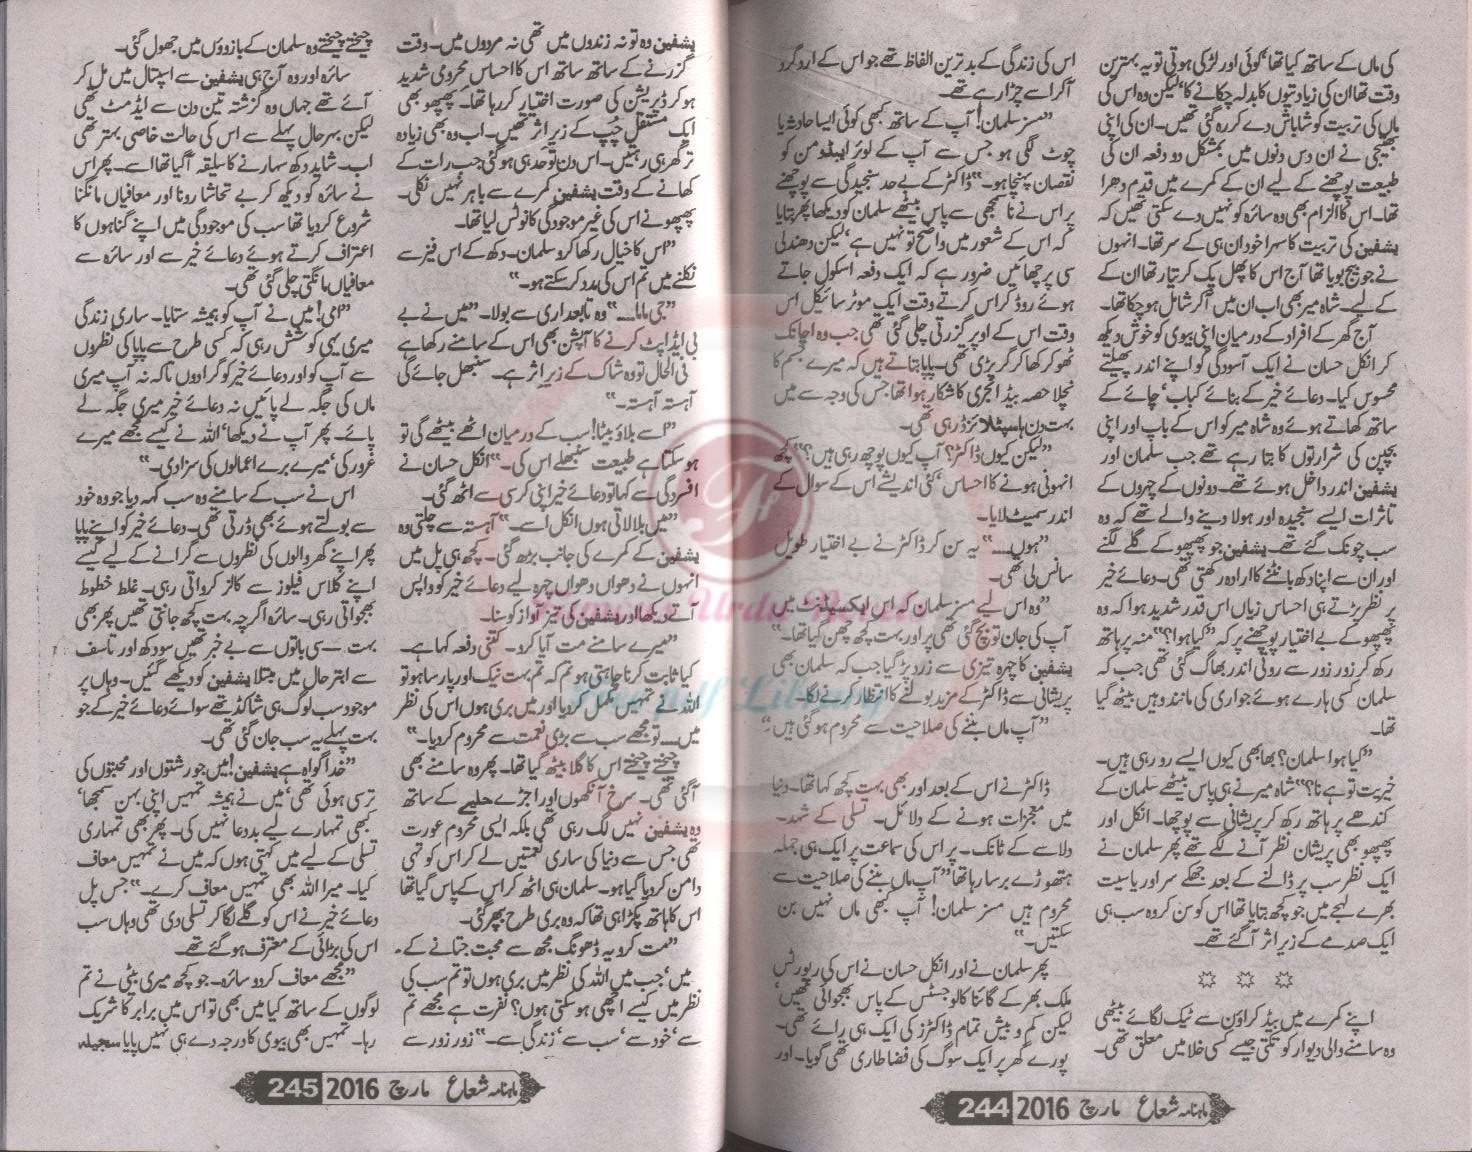 کی ماں کے ساتھ کیا تھا، کوئی اور لڑکی ہوتی تو یہ بہترین
وقت تھا ان کی زیادتیوں کا بدلہ چکانے کا، لیکن وہ اس کی
ماں کی تربیت کو شاباش دے کر رہ گئی تھیں۔ ان کی اپنی
بھتیجی نے ان دس دنوں میں بمشکل دو دفعہ ان کی
طبیعت پوچھنے کے لیے ان کے کمرے میں قدم دھرا
تھا۔ اس کا الزام بھی وہ سائرہ کو نہیں دے سکتی تھیں کہ
یشفین کی تربیت کا سہرا خود ان ہی کے سر تھا۔ انہوں
نے جو بیج بویا تھا آج اس کا پھل پک کر تیار تھا ان کے
لیے۔ شاہ میر بھی اب ان میں آ کر شامل ہو چکا تھا۔
آج گھر کے افراد کے درمیان اپنی بیوی کو خوش دیکھ
کر انکل حسان نے ایک آسودگی کو اپنے اندر پھیلتے
محسوس کیا۔ دعائے خیر کے بنائے کباب، چائے کے
ساتھ کھاتے ہوئے وہ شاہ میر کو اس کے باپ اور اپنی
بچپن کی شرارتوں کا بتا رہے تھے جب سلمان اور
یشفین اندر داخل ہوئے تھے۔ دونوں کے چہروں کے
تاثرات ایسے سنجیدہ اور ہولا دینے والے تھے کہ وہ
سب چونک گئے تھے۔ یشفین جو پھپھو کے گلے لگنے
اور ان سے اپنا دکھ بانٹنے کا ارادہ رکھتی تھی۔ دعائے خیر
پر نظر پڑتے ہی احساس زیاں اس قدر شدید ہوا کہ وہ
پھپھو کے بے اختیار پوچھنے پر کہ ”کیا ہوا؟“ منہ پر ہاتھ
رکھ کر زور زور سے روتی اندر بھاگ گئی تھی جب کہ
سلمان کسی ہارے ہوئے جواری کی مانند وہیں بیٹھ گیا
تھا۔
”کیا ہوا سلمان؟ بھابھی کیوں ایسے رو رہی ہیں۔
خیریت تو ہے نا؟“ شاہ میر نے ہی پاس بیٹھے سلمان کے
کندھے پر ہاتھ رکھ کر پریشانی سے پوچھا۔ انکل اور
پھپھو بھی پریشان نظر آنے لگے تھے پھر سلمان نے
ایک نظر سب پر ڈالنے کے بعد جھکے سر اور یاسیت
بھرے لہجے میں جو کچھ بتایا تھا اس کو سن کر وہ سب ہی
ایک صدمے کے زیر اثر آ گئے تھے۔
☆ ☆ ☆
اپنے کمرے میں بیڈ کراؤن سے ٹیک لگائے بیٹھی
وہ سامنے والی دیوار کو تکتی جیسے کسی خلا میں معلق تھی۔
اس کی زندگی کے بد ترین الفاظ تھے جو اس کے ارد گرد
آ کر اسے چڑا رہے تھے۔
”مسز سلمان! آپ کے ساتھ کبھی کوئی ایسا حادثہ یا
چوٹ لگی ہو جس سے آپ کے لوئر ایبڈومن کو
نقصان پہنچا ہو۔“ ڈاکٹر کے بے حد سنجیدگی سے پوچھنے
پر اس نے ناسمجھی سے پاس بیٹھے سلمان کو دیکھا پھر بتایا
کہ اس کے شعور میں واضح تو نہیں ہے، لیکن دھندلی
سی پرچھائیں ضرور ہے کہ ایک دفعہ اسکول جاتے
ہوئے روڈ کراس کرتے وقت ایک موٹر سائیکل اس
وقت اس کے اوپر گزرتی چلی گئی تھی جب وہ اچانک
ٹھوکر کھا کر گر پڑی تھی۔ پاپا بتاتے ہیں کہ میرے جسم کا
نچلا حصہ بیڈ انجری کا شکار ہوا تھا جس کی وجہ سے میں
بہت دن ہاسپٹلائزڈ رہی تھی۔
”لیکن کیوں ڈاکٹر؟ آپ کیوں پوچھ رہی ہیں؟“ کچھ
انہونی ہونے کا احساس، کئی اندیشے اس کے سوال کے
اندر سمیٹ لایا۔
”ہوں....“ یہ سن کر ڈاکٹر نے بے اختیار طویل
سانس لی تھی۔
”وہ اس لیے مسز سلمان کہ اس ایکسیڈنٹ میں
آپ کی جان تو بچ گئی تھی پر اور بہت کچھ چھن گیا تھا۔“
یشفین کا چہرہ تیزی سے زرد پڑ گیا جب کہ سلمان بھی
پریشانی سے ڈاکٹر کے مزید بولنے کا انتظار کرنے لگا۔
”آپ ماں بننے کی صلاحیت سے محروم ہو گئی ہیں۔“
ڈاکٹر نے اس کے بعد اور بھی بہت کچھ کہا تھا۔ دنیا
میں معجزات ہونے کے دلائل۔ تسلی کے شہد۔
دلاسے کے ٹانک۔ پر اس کی سماعت پر ایک ہی جملہ
ہتھوڑے برسا رہا تھا ”آپ ماں بننے کی صلاحیت سے
محروم ہیں مسز سلمان! آپ کبھی ماں نہیں بن
سکتیں۔“
پھر سلمان نے اور انکل حسان نے اس کی رپورٹس
ملک بھر کے گائناکالوجسٹس کے پاس بھجوائی تھیں،
لیکن کم و بیش تمام ڈاکٹرز کی ایک ہی رائے تھی۔
پورے گھر پر ایک سوگ کی فضا طاری تھی گویا۔ اور
ماہنامہ شعاع مارچ 2016 244
یشفین وہ تو نہ زندوں میں تھی نہ مردوں میں۔ وقت
گزرنے کے ساتھ ساتھ اس کا احساس محرومی شدید
ہو کر ڈپریشن کی صورت اختیار کر رہا تھا۔ پھپھو بھی
ایک مستقل چپ کے زیر اثر تھیں۔ اب وہ بھی زیادہ
تر گھر ہی رہتیں۔ اس دن تو حد ہی ہو گئی جب رات کے
کھانے کے وقت یشفین کمرے سے باہر نہیں نکلی۔
پھپھو نے اس کی غیر موجودگی کا نوٹس لیا تھا۔
”اس کا خیال رکھا کرو سلمان۔ دکھ کے اس فیز سے
نکلنے میں تم اس کی مدد کر سکتے ہو۔“
”جی ماما....“ وہ تابعداری سے بولا۔ ”میں نے بے
بی ایڈاپٹ کرنے کا آپشن بھی اس کے سامنے رکھا ہے
فی الحال تو وہ شاک کے زیر اثر ہے۔ سنبھل جائے گی
آہستہ آہستہ۔“
”اسے بلاؤ بیٹا! سب کے درمیان اٹھے بیٹھے گی تو
ہو سکتا ہے طبیعت سنبھلے اس کی۔“ انکل حسان نے
افسردگی سے کہا تو دعائے خیر اپنی کرسی سے اٹھ گئی۔
”میں بلا لاتی ہوں انکل اسے۔“ آہستہ سے چلتی وہ
یشفین کے کمرے کی جانب بڑھ گئی۔ کچھ ہی پل میں
انہوں نے دھواں دھواں چہرہ لیے دعائے خیر کو واپس
آتے دیکھا اور یشفین کی تیز آواز کو سنا۔
”میرے سامنے مت آیا کرو۔ کتنی دفعہ کہا ہے۔
کیا ثابت کرنا چاہتی ہو تم کہ تم بہت نیک اور پارسا ہو تو
اللہ نے تمہیں مکمل کر دیا اور میں بری ہوں اس کی نظر
میں.... تو مجھے سب سے بڑی نعمت سے محروم کر دیا۔“
چیختے چیختے اس کا گلا بیٹھ گیا تھا۔ پھر وہ سامنے بھی
آ گئی تھی۔ سرخ آنکھوں اور اجڑے حلیے کے ساتھ
وہ یشفین نہیں لگ رہی تھی بلکہ ایسی محروم عورت
تھی جس سے دنیا کی ساری نعمتیں لے کر اس کو تہی
دامن کر دیا گیا ہو۔ سلمان ہی اٹھ کر اس کے پاس گیا تھا
اس کا ہاتھ پکڑا ہی تھا کہ وہ بری طرح بپھر گئی۔
”مت کرو یہ ڈھونگ مجھ سے محبت جتانے کے۔
میں، جب میں اللہ کی نظر میں بری ہوں تو تم سب کی
نظر میں کیسے اچھی ہو سکتی ہوں؟ نفرت ہے مجھے تم
سے، خود سے، سب سے، زندگی سے۔“ زور زور سے
چیختے چیختے وہ سلمان کے بازوؤں میں جھول گئی۔
سائرہ اور وہ آج ہی یشفین سے اسپتال میں مل کر
آئے تھے جہاں وہ گزشتہ تین دن سے ایڈمٹ تھی
لیکن بہرحال پہلے سے اس کی حالت خاصی بہتر تھی
اب۔ شاید دکھ سہارنے کا سلیقہ آ گیا تھا اسے۔ پھر اس
نے سائرہ کو دیکھ کر بے تحاشا رونا اور معافیاں مانگنا
شروع کر دیا تھا سب کی موجودگی میں اپنے گناہوں کا
اعتراف کرتے ہوئے دعائے خیر سے اور سائرہ سے
معافیاں مانگتی چلی گئی تھی۔
”امی! میں نے آپ کو ہمیشہ ستایا۔ ساری زندگی
میری یہی کوشش رہی کہ کسی طرح سے پاپا کی نظروں
سے آپ کو اور دعائے خیر کو گرا دوں تاکہ نہ آپ میری
ماں کی جگہ لے پائیں نہ دعائے خیر میری جگہ لے
پائے۔ پھر آپ نے دیکھا، اللہ نے کیسے مجھے میرے
غرور کی، میرے برے اعمالوں کی سزا دی۔“
اس نے سب کے سامنے وہ سب کہہ دیا جو وہ خود
سے بولتے ہوئے بھی ڈرتی تھی۔ دعائے خیر کو اپنے پاپا
پھر اپنے گھر والوں کی نظروں سے گرانے کے لیے کیسے
اپنے کلاس فیلوز سے کالز کرواتی رہی۔ غلط خطوط
بھجواتی رہی۔ سائرہ اگرچہ بہت کچھ جانتی تھیں پھر بھی
بہت سی باتوں سے بے خبر تھیں سو دکھ اور تاسف
سے ابتر حال میں مبتلا یشفین کو دیکھے گئیں۔ وہاں پر
موجود سب لوگ ہی شاکڈ تھے سوائے دعائے خیر کے جو
بہت پہلے یہ سب جان گئی تھی۔
”خدا گواہ ہے یشفین! میں جو رشتوں اور محبتوں کی
ترسی ہوئی تھی، میں نے ہمیشہ تمہیں اپنی بہن سمجھا،
کبھی تمہارے لیے بددعا نہیں کی۔ پھر بھی تمہاری
تسلی کے لیے میں کہتی ہوں کہ میں نے تمہیں معاف
کیا۔ میرا اللہ بھی تمہیں معاف کرے۔“ جس پل
دعائے خیر نے اس کو گلے لگا کر تسلی دی تھی وہاں سب
اس کی بڑائی کے معترف ہو گئے تھے۔
”مجھے معاف کر دو سائرہ۔ جو کچھ میری بیٹی نے تم
لوگوں کے ساتھ کیا میں بھی تو اس میں برابر کا شریک
رہا۔ تمہیں بھی بیوی کا درجہ دے ہی نہیں پایا سجیلہ
ماہنامہ شعاع مارچ 2016 245